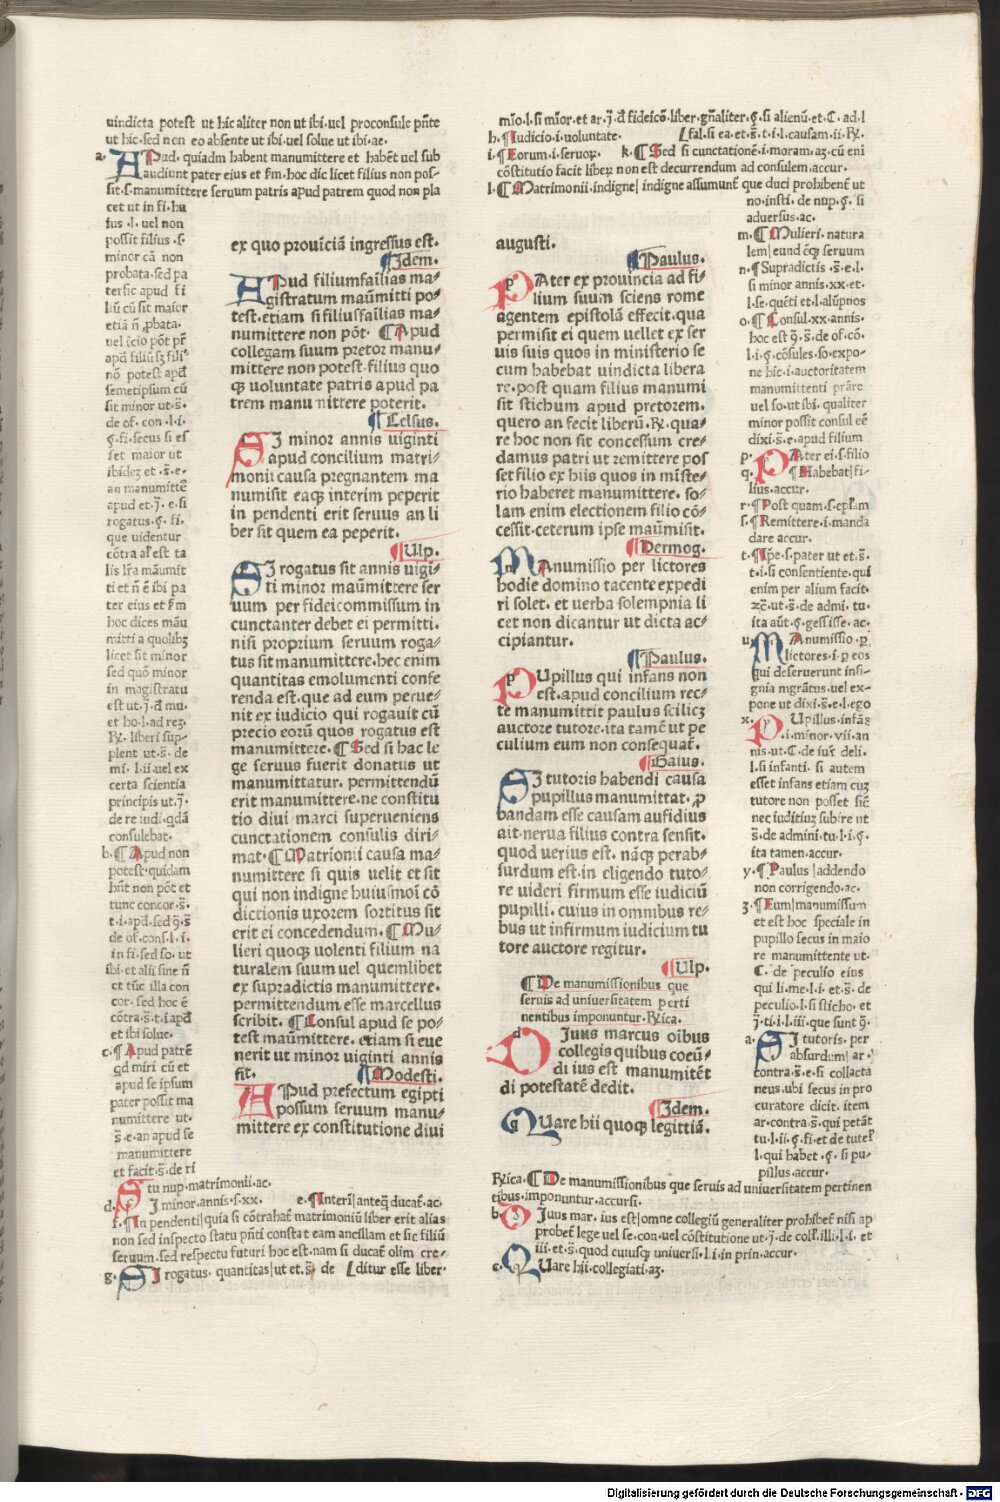 uindicta potest ut hic aliter non ut ibi.uel proconsule pn̄te
ut hic.sed non eo absente ut ibi.uel solue ut ibi.ac.
a. APud. quidam habent manumittere et habēt uel sub
audiunt pater eius et fīm.hoc dic licet filius non pos-
sit.s.manumittere seruum patris apud patrem quod non pla
cet ut in fi.hu
ius .l. uel non
possit filius .s.
minor cā non
probata.sed pa
ter sic apud fi
liū cū sit maior
etiā n̄ ꝓbata.
semetipsum cū
sit minor ut.s̄.
de of. con .l.i.
set maior ut
an manumittē
rogatus.ꝗ. fi.
que uidentur
lis lr̄a māumit
ter eius et fīm
hoc dices māu
mitti a quolibꝫ
licet sit minor
sed quō minor
in magistratu
plent ut.s̄. de
mi. l.ii.uel ex
certa scientia
principis ut.j̄.
consulebat.
b.¶Apud non
potest.quidam
tunc concor.s̄.
in fi.sed so. ut
ibi.et alii sine n̄
et tūc illa con
cor.sed hoc ē
et ibi solue.
c.¶Apud patrē
qd miri cū et
apud se ipsum
pater possit ma
numittere ut.
s̄.e.an apud se
manumittere
et facit.s̄.de ri
tu nup.matrimonii.ac.
d. SI minor.annis.s.xx. e.¶Interi|anteq̄ ducat̄.ac.
f.¶In pendenti|quia si cōtrahat̄ matrimoniū liber erit alias
non sed inspecto statu pn̄ti constat eam ancillam et sic filiū
seruum.sed respectu futuri hoc est.nam si ducat̄ olim cre-
g. SI rogatus. quantitas|ut et.s̄. de Lditur esse liber.
ex quo prouīciā ingressus est.
¶Idem.
APud filiumfailias ma-
gistratum maūmitti po-
test.etiam si filiusfailias ma-
numittere non pōt. ¶Apud
collegam suum pretor manu-
mittere non potest.filius quo
qꝫ uoluntate patris apud pa
trem manumittere poterit.
¶Celsus.
SI minor annis uiginti
apud concilium matri-
monii causa pregnantem ma
numisit eaqꝫ interim peperit
in pendenti erit seruus an li
ber sit quem ea peperit.
¶Ulp.
SI rogatus sit annis uigi-
ti minor maūmittere ser
uum per fideicommissum in
cunctanter debet ei permitti.
nisi proprium seruum roga-
tus sit manumittere.hec enim
quantitas emolumenti confe
renda est.que ad eum perue-
nit ex iudicio qui rogauit cū
precio eorū quos rogatus est
manumittere.¶Sed si hac le
ge seruus fuerit donatus ut
manumittatur. permittendū
erit manumittere.ne constitu
tio diui marci superueniens
cunctationem consulis diri-
mat.¶Matrionii causa ma-
numittere si quis uelit et sit
qui non indigne huiusmoi cō
dictionis uxorem sortitus sit
erit ei concedendum.¶Mu-
lieri quoqꝫ uolenti filium na
turalem suum uel quemlibet
ex supradictis manumittere.
permittendum esse marcellus
scribit. ¶Consul apud se po-
test maūmittere. etiam si eue
nerit ut minor uiginti annis
sit. ¶Modesti.
APud prefectum egipti
possum seruum manu-
mittere ex constitutione diui
mīo.l.si mīor.et ar.j̄.d̄ fideicō.liber.gn̄aliter.ꝗ.si alienū.et.C. ad.l
h.¶Iudicio.i.uoluntate. Lfal.si ea.et.s̄.t.i.l.causam.ii.℞.
i.¶Eorum.i.seruoꝝ. k.¶Sed si cunctationē.i.moram.aꝫ.cū eni
cōstitutio facit liberꝝ non est decurrendum ad consulem.accur.
l.¶Matrimonii.indigne| indigne assumunt̄ que duci prohibent̄ ut
no.insti. de nup.ꝗ. si
aduersus.ac.
augusti.
¶Paulus.
PAter ex prouincia ad fi-
lium suum sciens rome
agentem epistolā effecit.qua
permisit ei quem uellet ex ser
uis suis quos in ministerio se
cum habebat uindicta libera
re.post quam filius manumi
sit stichum apud pretorem.
quero an fecit liberū.℞.qua-
re hoc non sit concessum cre-
damus patri ut remittere pos
set filio ex hiis quos in miste-
rio haberet manumittere. so-
lam enim electionem filio cō-
cessit.ceterum ipse maūmisit.
¶Hermog.
MAnumissio per lictores
hodie domino tacente expedi
ri solet. et uerba solempnia li
cet non dicantur ut dicta ac-
cipiantur.
¶Paulus.
PUpillus qui infans non
est.apud concilium rec-
te manumittit paulus scilicꝫ
auctore tutore.ita tamē ut pe
culium eum non consequat̄.
¶Gaius.
SI tutoris habendi causa
pupillus manumittat. ꝓ
bandam esse causam aufidius
ait.nerua filius contra sensit.
quod uerius est. nāqꝫ perab-
surdum est.in eligendo tuto-
re uideri firmum esse iudiciū
pupilli. cuius in omnibus re-
bus ut infirmum iudicium tu
tore auctore regitur.
¶Ulp.
¶De manumissionibus que
seruis ad uniuersitatem perti
nentibus imponuntur.℞ica.
DIuus marcus oībus
collegis quibus coeū-
di ius est manumitēt
di potestatē dedit.
¶Idem.
QUare hii quoqꝫ legittiā.
m.¶Mulieri. natura
lem| eundēqꝫ seruum
n.¶Supradictis .s̄.e.l.
si minor annis.xx.et.
l.se.quēti et.l.alūpnos
o.¶Consul.xx.annis.
hoc est ꝗ.s̄.de of.cō.
l.i.ꝗ.cōsules.so.expo-
ne hīc.i.auctoritatem
manumittenti prāre
uel so.ut ibi. qualiter
minor possit consul eē
dixi.s̄.e.apud filium
p. PAter ei.s.filio
q. ¶Habebat|fi-
lius.accur.
r.¶Post quam.s.epl̄am
s.¶Remittere.i.manda
dare accur.
t.¶Ipse.s.pater ut et.s̄.
t.i.si consentiente.qui
enim per alium facit.
ꝛc̄.ut.s̄.de admi. tu.
ita aūt.ꝗ.gessisse.ac.
u. MAnumissio .ꝑ.
lictores.i.ꝑ eos
qui deseruerunt insi-
gnia mgr̄atus.uel ex-
pone ut dixi.s̄.e.l.ego
x. PUpillus.infās
.i.minor.vii.an
nis.ut.C.de iur̄ deli.
l.si infanti. si autem
esset infans etiam cuꝫ
tutore non posset sic̄
nec iuditiuꝫ subire ut
s̄.de admini.tu.l.i.ꝗ.
ita tamen.accur.
y.¶Paulus |addendo
non corrigendo.ac.
z.¶Eum|manumissum
et est hoc speciale in
pupillo secus in maio
re manumittente ut.
C. de peculio eius
qui li.me.l.i et.s̄.de
peculio.l.si sticho. et
j̄.ti.i.l.iii.que sunt ꝗ̄.
a. SI tutoris. per
absurdum| ar.
contra.s̄.e.si collacta
neus.ubi secus in pro
curatore dicit. item
ar.contra.s̄.qui petāt
tu.l.ii.ꝗ.fi.et de tutel̄
l.qui habet .ꝗ. si pu-
pillus.accur.
℞ica.¶De manumissionibus que seruis ad uniuersitatem pertinen
tibus.imponuntur.accursi.
b. DIuus mar. ius est|omne collegiū generaliter prohibet̄ nisi ap
probet̄ lege uel se.con.uel cōstitutione ut.j̄.de coll̄.illi.l.i. et
iii.et.s̄.quod cuiusqꝫ uniuersi.l.i.in prin.accur.
c. QUare hii.collegiati.aꝫ.
Digitalisierung gefördert durch die Deutsche Forschungsgemeinschaft - DFG